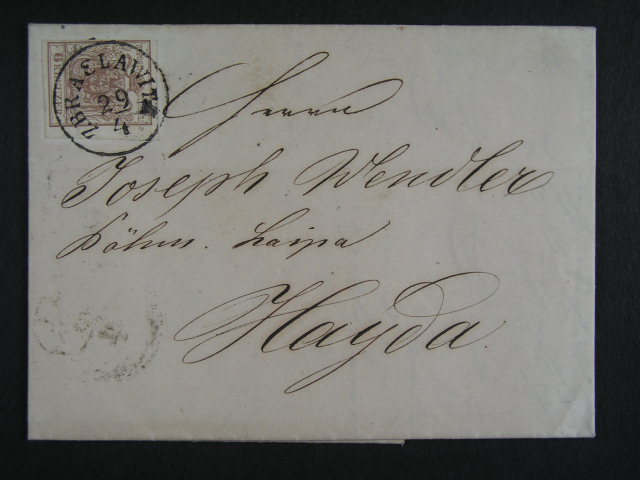 ZBRASLAWITZ
29
4
Herrn
Joseph Wendler
Böhm. Laipa
Hayda.